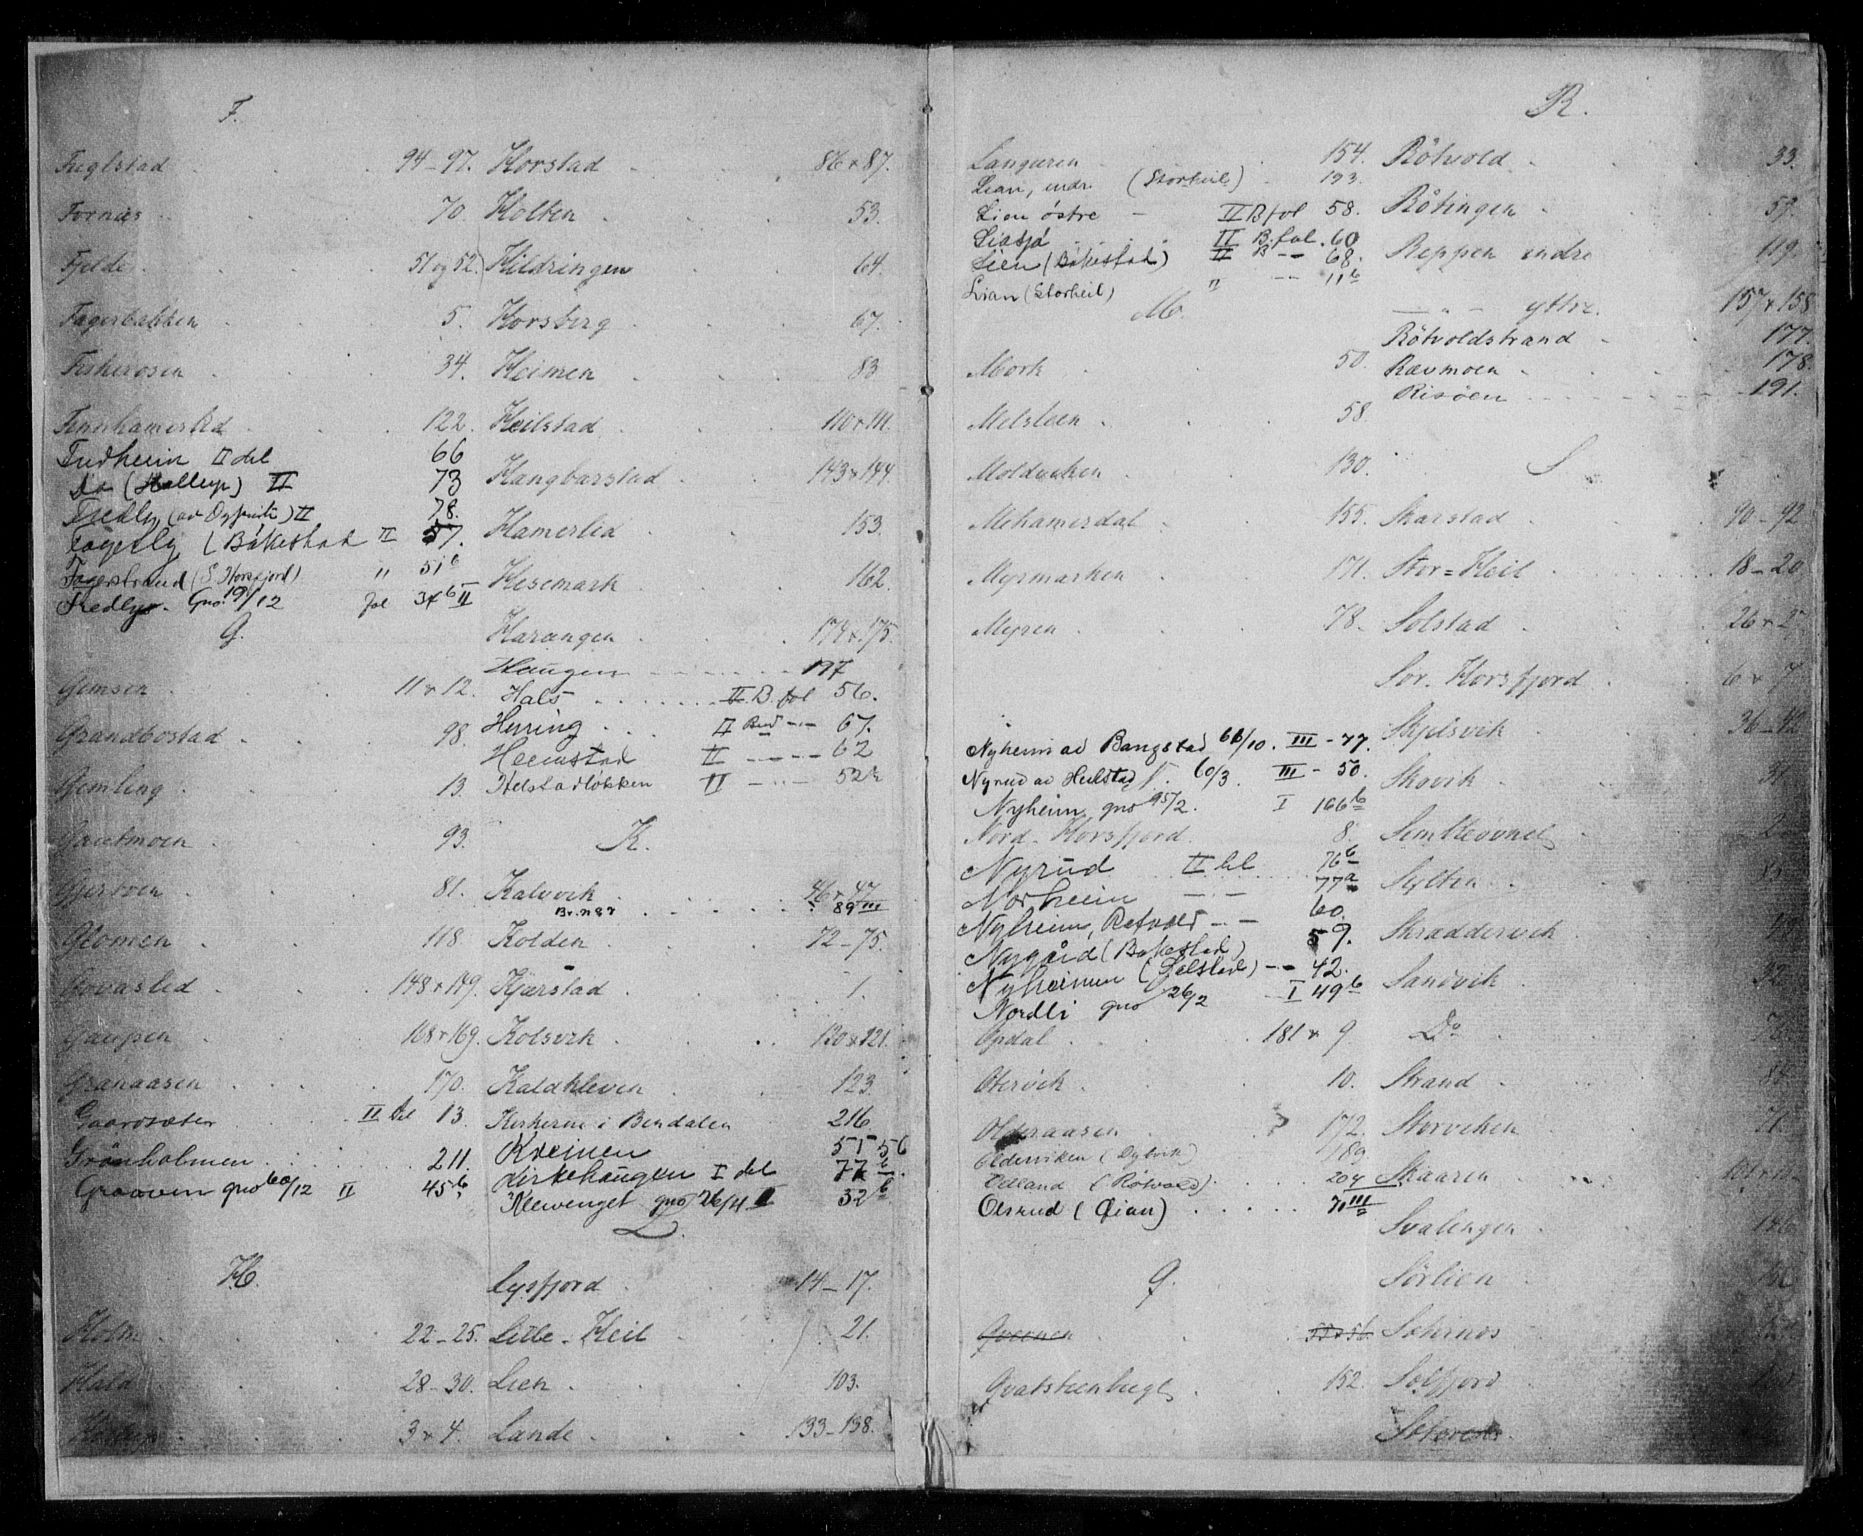 F.
Fuglstad 94-97.
Fornæs 70.
Fjelde 51 og 52.
Fagerbakken 5.
Fiskerosen 34.
Fennhamerlid 122.
Fredheim II del 66
Do (Hollup) II 73
Fredly II 78.
Fagerly (Båkestad II 57.
Fagerstrand (S. Horsfjord) " 51b
Fredly. Gno. 19/12 fol 34b II
G.
Gimsen 11 & 12.
Grandbostad 98.
Gimling 13.
Gauetmoen 93.
Gjersoen 81.
Glomen 118.
Govaslid 148 & 149.
Gaupen 168 & 169.
Granaasen 170.
Gaardsæter II del 13.
Grönholmen 211.
Grooven gno 60/12 II 45b
H.
Holm 22-25.
Hald 28-30.
3 & 4.
Horstad 86 & 87.
Holten 53.
Hildringen 64.
Horsberg 67.
Heimen 83
Heilstad 110 & 111.
Hangbarstad 143 & 144.
Hamerlid 153.
Hesemark 162.
Harangen 174 & 175.
Haugen 197
Hals II B. fol 56.
Herring II Bind 67.
Heimstad II 62
Helstadløkken II 52b
K.
Kalvvik 46 & 47
Br. n 87 89 III
Kolden 72-75.
Kjærstad 1.
Kolsvik 120 & 121.
Kaldkleven 123.
Kirkerne i Bindalen 216
Kveinen 55 56
Kirkehaugen I del 77b.
Klevenget gno 26/4 II 32b
L.
Lysfjord 14-17.
Lille-Heil 21.
Lien 103.
Lande 133-138.
Langøren 154.
Lian, indr. (Storheil) 193.
Lien østre II B fol 58.
Liasjø II B. fol. 60
Lien (Båkestad) II B 68.
Lian (Storheil) " 11b
M.
Mork 50.
Melsteen 58
Moldviken 130.
Mehamerdal 155.
Myrmarken 171.
Myren 78.
Nyheim av Bangstad 66/10. III - 77.
Nyrud av Heilstad 60/3. III - 50.
Nyheim gno 95/2. I 166b
Nord-Horsfjord 8
Nyrud II del 76b
Norheim 77a
Nyheim, Røtvold 60.
Nygård (Båkestad) 59.
Nyheimen 42.
Nordli gno 26/2 I 49b
Opdal 181 & 9
Otervik 10.
Olderaasen 172.
Olderviken 189.
Odland (Røtvold) 204
Olsrud (Øian) 71 III
Q.
Qveinen 55 & 56
Qvatsteenbugt 152.
R.
Rötvold 33.
Rötingen 59.
Reppen indre 119.
— " — yttre. 157 & 158
Rötvoldstrand 177.
Rævmoen 178.
Risöen 191.
S
Skarstad 90-92
Stor=Heil 18-20
Solstad 26 & 27
Sør-Horsfjord 6 & 7
Skjelsvik 36-42
Skovik 31
Simlestovnet
Sylten
Skraddervik
Sandvik 32
Do
Strand 84
Storviken 71.
Skaaren
Svalengen 146
Sörlien
Sæternes
Sølfjord